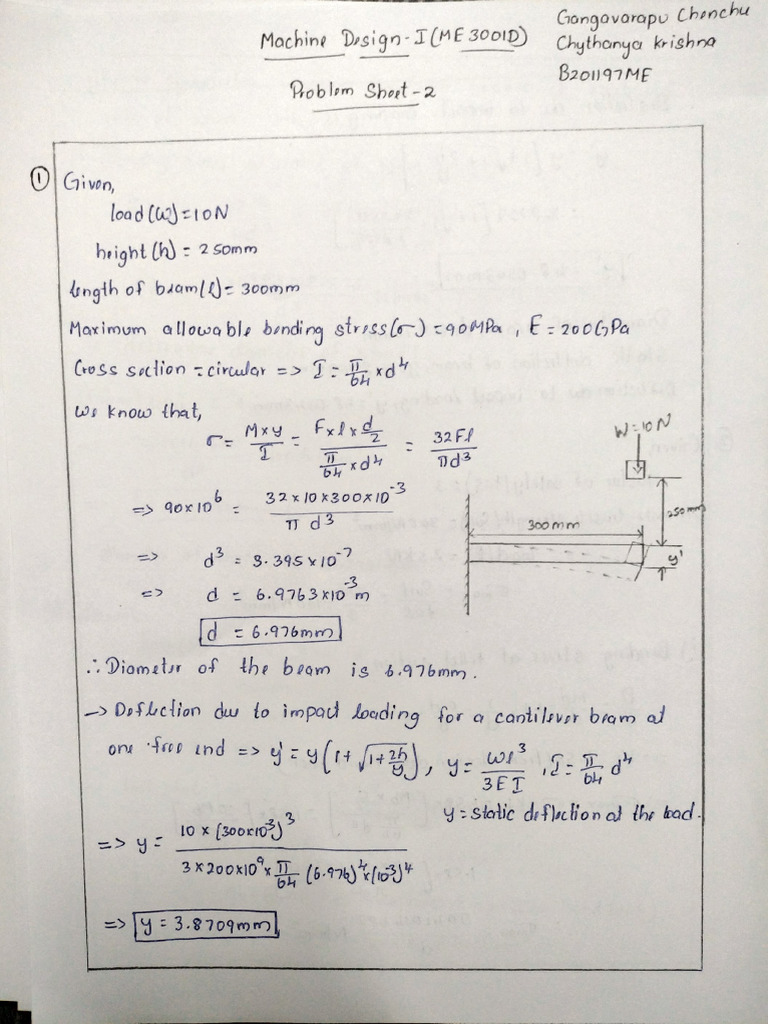 Machine Design-I (ME3001D)
Gangavarapu Chenchu
Chythanya Krishna
B201197ME
Problem Sheet-2
① Given,
load (W) = 10N
height (h) = 250mm
length of beam (l) = 300mm
Maximum allowable bending stress (σ) = 90MPa, E = 200GPa
Cross section = circular => I = π/64 × d⁴
We know that,
σ = M×y/I = F×l×d/2 / π/64×d⁴ = 32Fl/πd³
=> 90×10⁶ = 32×10×300×10⁻³ / π d³
=> d³ = 3.395×10⁻⁷
=> d = 6.9763×10⁻³m
d = 6.976mm
W=10N
300mm
250mm
y'
∴ Diameter of the beam is 6.976mm.
-> Deflection due to impact loading for a cantilever beam at
one free end => y' = y(1+√(1+2h/y)), y = Wl³/3EI, I = π/64 d⁴
y = static deflection at the load.
=> y = 10×(300×10⁻³)³ / 3×200×10⁹×π/64 (6.976)⁴×(10⁻³)⁴
=> y = 3.8709mm